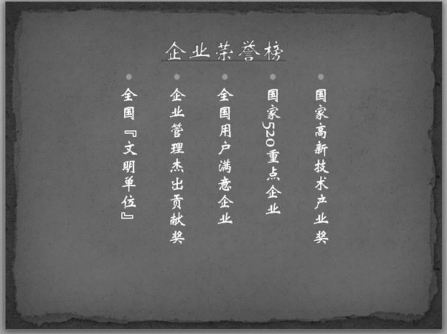 企业荣誉榜
国家高新技术产业奖
国家520重点企业
全国用户满意企业
企业管理杰出贡献奖
全国『文明单位』